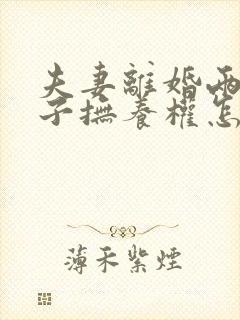 夫妻離婚兩
子撫養權怎
薄禾紫煙